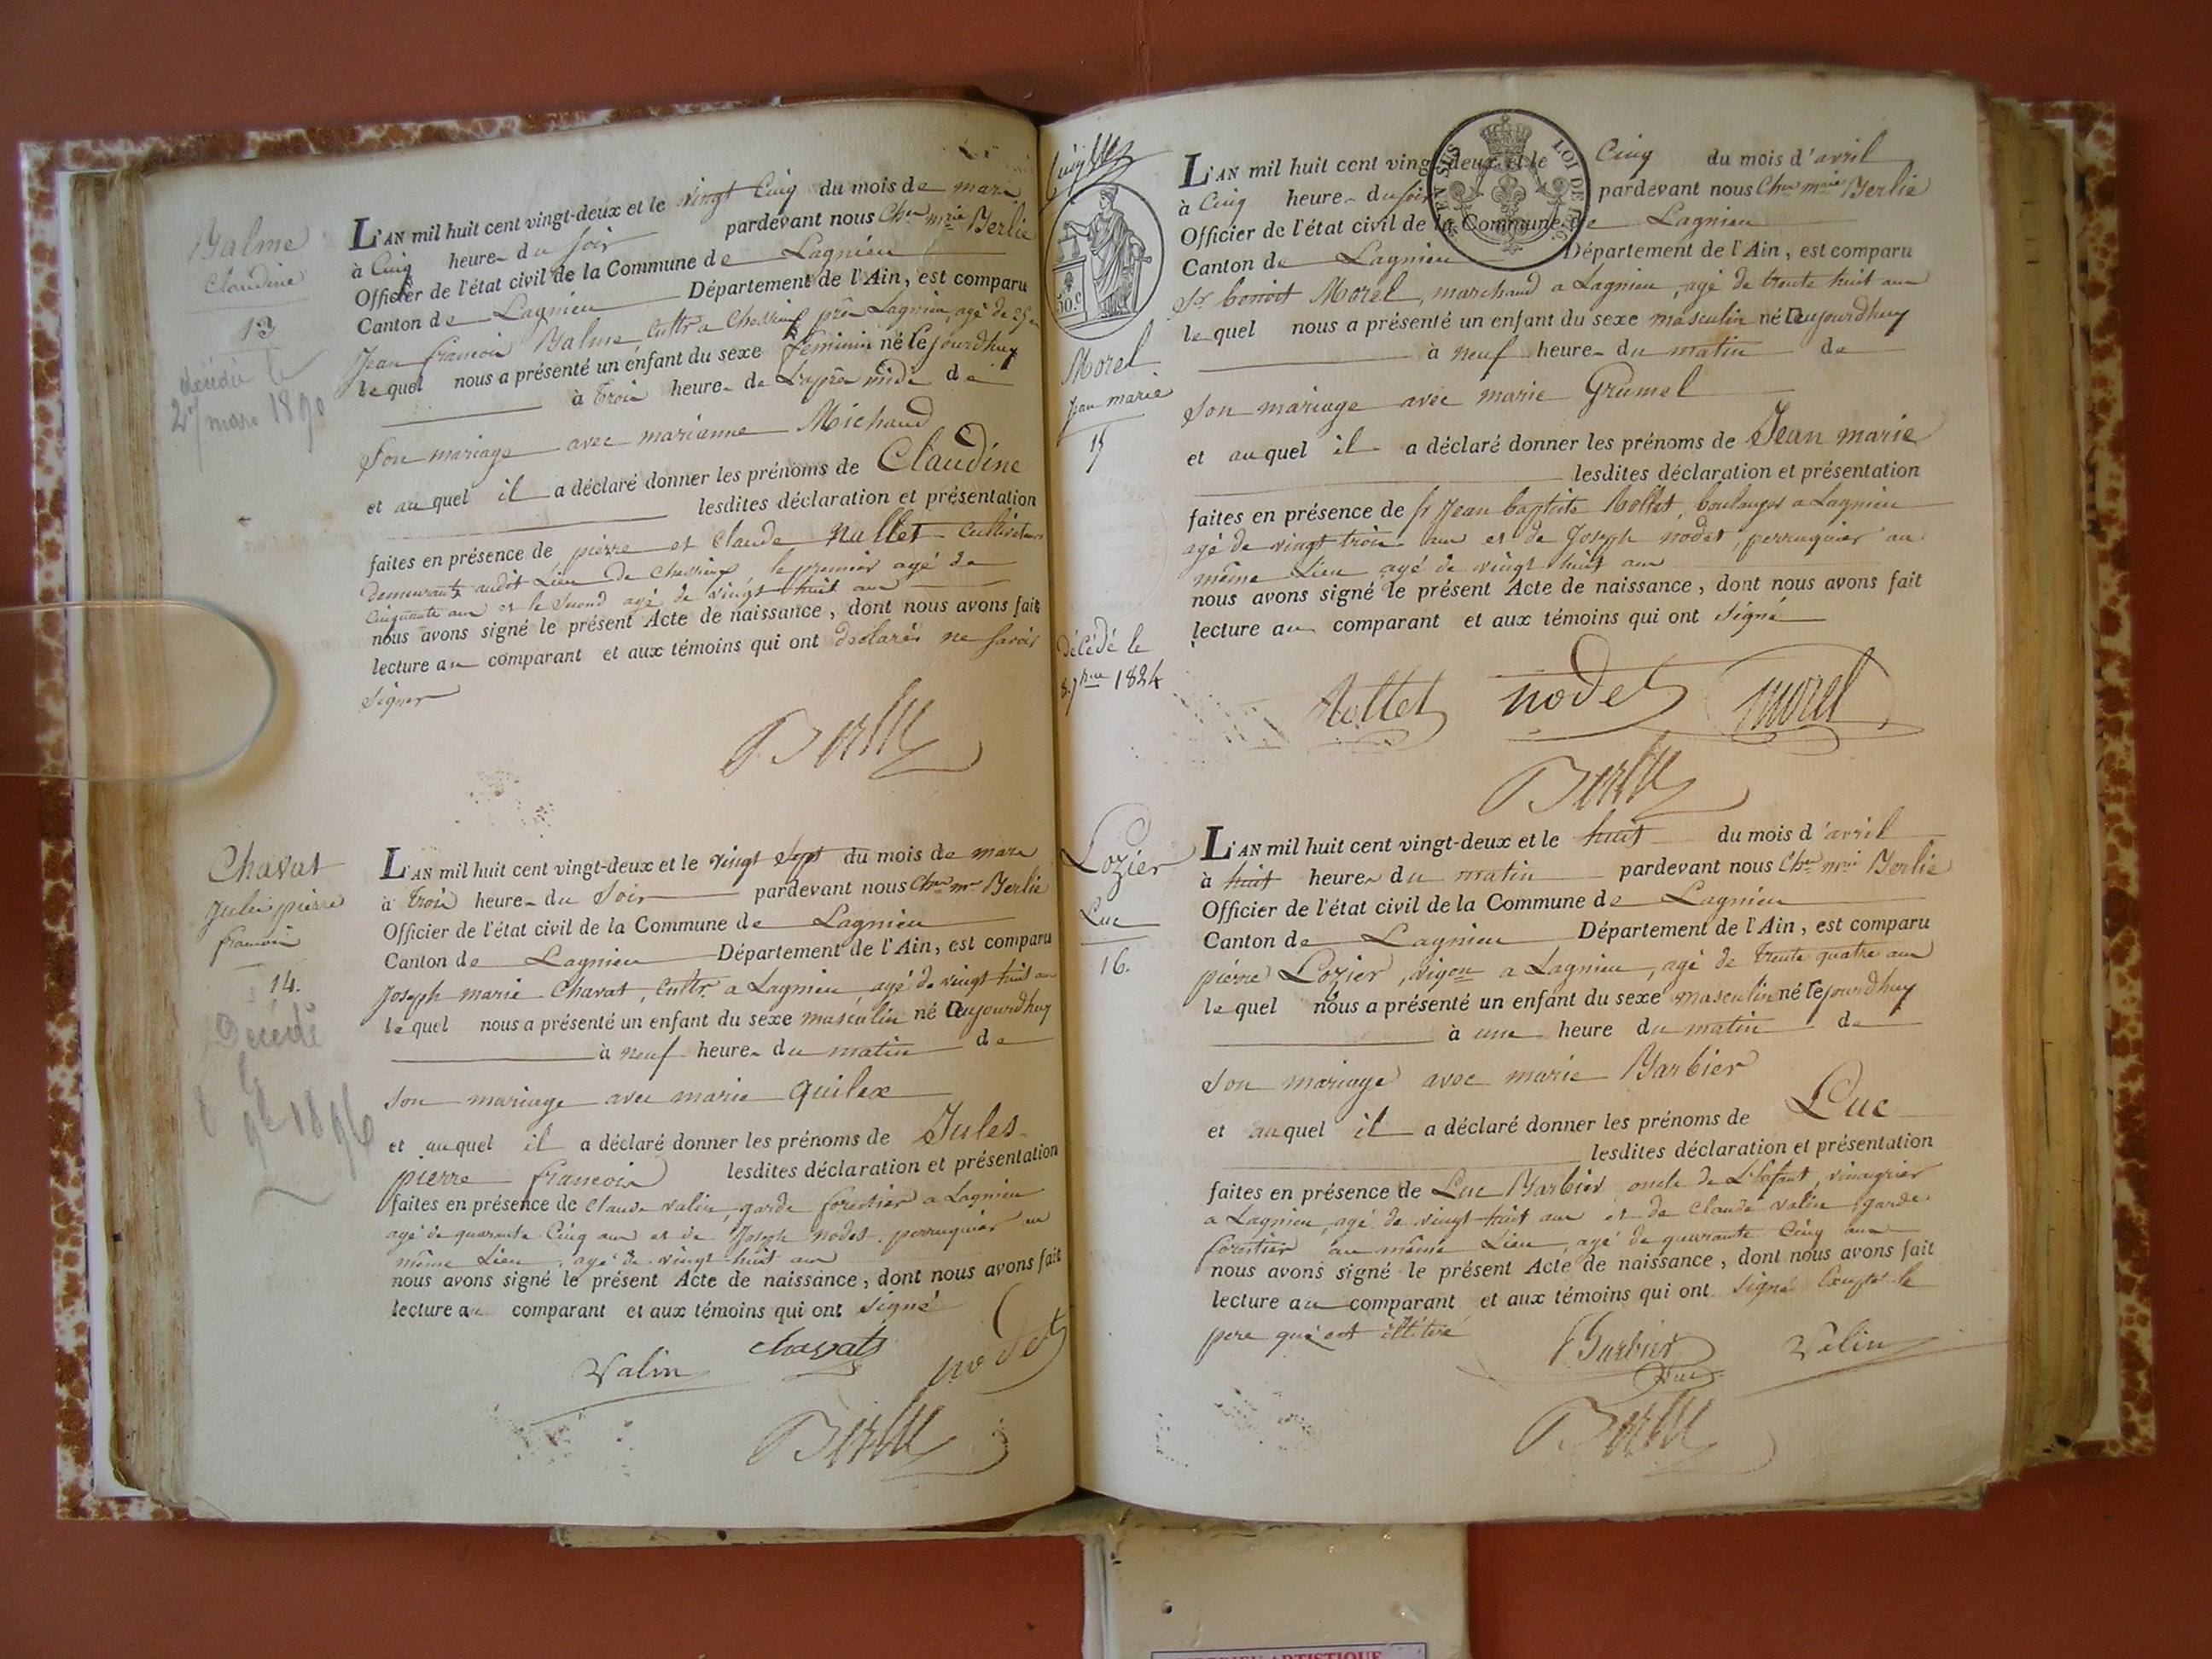 Balme
Claudine
13
décédé le
27 mars 1890
L'AN mil huit cent vingt-deux et le vingt Cinq du mois de mars
à Cinq heures du soir pardevant nous Cher mrie Berlie
Officier de l'état civil de la Commune de Lagnieu
Canton de Lagnieu Département de l'Ain, est comparu
Jean francois Balme, Cultr a près Lagnieu, agé de
lequel nous a présenté un enfant du sexe féminin né Cejourdhuy
à Trois heures de L'après midi de
Son mariage avec marianne Michaud
et auquel il a déclaré donner les prénoms de Claudine
lesdites déclaration et présentation
faites en présence de pierre et Claude Nallet Cultivateurs
demeurants audit Lieu de le premier agé de
Cinquante ans et le Second agé de vingt huit ans
nous avons signé le présent Acte de naissance, dont nous avons fait
lecture au comparant et aux témoins qui ont déclarés ne Savoir
Signer
Berlie
Chavat
Jules pierre
francois
14.
Décédé
le
8 9e 1896
L'AN mil huit cent vingt-deux et le vingt Sept du mois de mars
à Trois heures du Soir pardevant nous Cher mie Berlie
Officier de l'état civil de la Commune de Lagnieu
Canton de Lagnieu Département de l'Ain, est comparu
Joseph marie Chavat, Cultr. a Lagnieu, agé de vingt huit ans
lequel nous a présenté un enfant du sexe masculin né aujourdhuy
à neuf heures du matin de
Son mariage avec marie Quilex
et auquel il a déclaré donner les prénoms de Jules
pierre francois lesdites déclaration et présentation
faites en présence de Claude valin, garde forestier a Lagnieu
agé de quarante Cinq ans et de Joseph nodet, perruquier au
même Lieu, agé de vingt huit ans
nous avons signé le présent Acte de naissance, dont nous avons fait
lecture au comparant et aux témoins qui ont Signé
Valin Chavat nodet
Berlie
50.c
Morel
Jean marie
15
décédé le
8 7bre 1824
LOI DE 1816.
L'AN mil huit cent vingt-deux et le Cinq du mois d'avril
à Cinq heures du soir pardevant nous Cher mrie Berlie
Officier de l'état civil de la Commune de Lagnieu
Canton de Lagnieu Département de l'Ain, est comparu
Sr benoit Morel, marchand a Lagnieu, agé de trente huit ans
lequel nous a présenté un enfant du sexe masculin né aujourdhuy
à neuf heures du matin de
Son mariage avec marie Grumel
et auquel il a déclaré donner les prénoms de Jean marie
lesdites déclaration et présentation
faites en présence de sr Jean baptiste Nollet, boulanger a Lagnieu
agé de vingt trois ans et de Joseph nodet, perruquier au
même Lieu agé de vingt huit ans
nous avons signé le présent Acte de naissance, dont nous avons fait
lecture au comparant et aux témoins qui ont Signé
Nollet nodet morel
Berlie
Lozier
Luc
16.
L'AN mil huit cent vingt-deux et le huit du mois d'avril
à huit heures du matin pardevant nous Cher mrie Berlie
Officier de l'état civil de la Commune de Lagnieu
Canton de Lagnieu Département de l'Ain, est comparu
pierre Lozier, vigon a Lagnieu, agé de trente quatre ans
lequel nous a présenté un enfant du sexe masculin né Cejourdhuy
à une heure du matin de
Son mariage avec marie Barbier
et auquel il a déclaré donner les prénoms de Luc
lesdites déclaration et présentation
faites en présence de Luc Barbier oncle de L'Enfant, vinaigrier
a Lagnieu, agé de vingt huit ans et de Claude valin, garde
forestier au même Lieu, agé de quarante Cinq ans
nous avons signé le présent Acte de naissance, dont nous avons fait
lecture au comparant et aux témoins qui ont Signé Excepté le
pere qui est illitéré
Barbier Luc Valin
Berlie
ARTISTIQUE